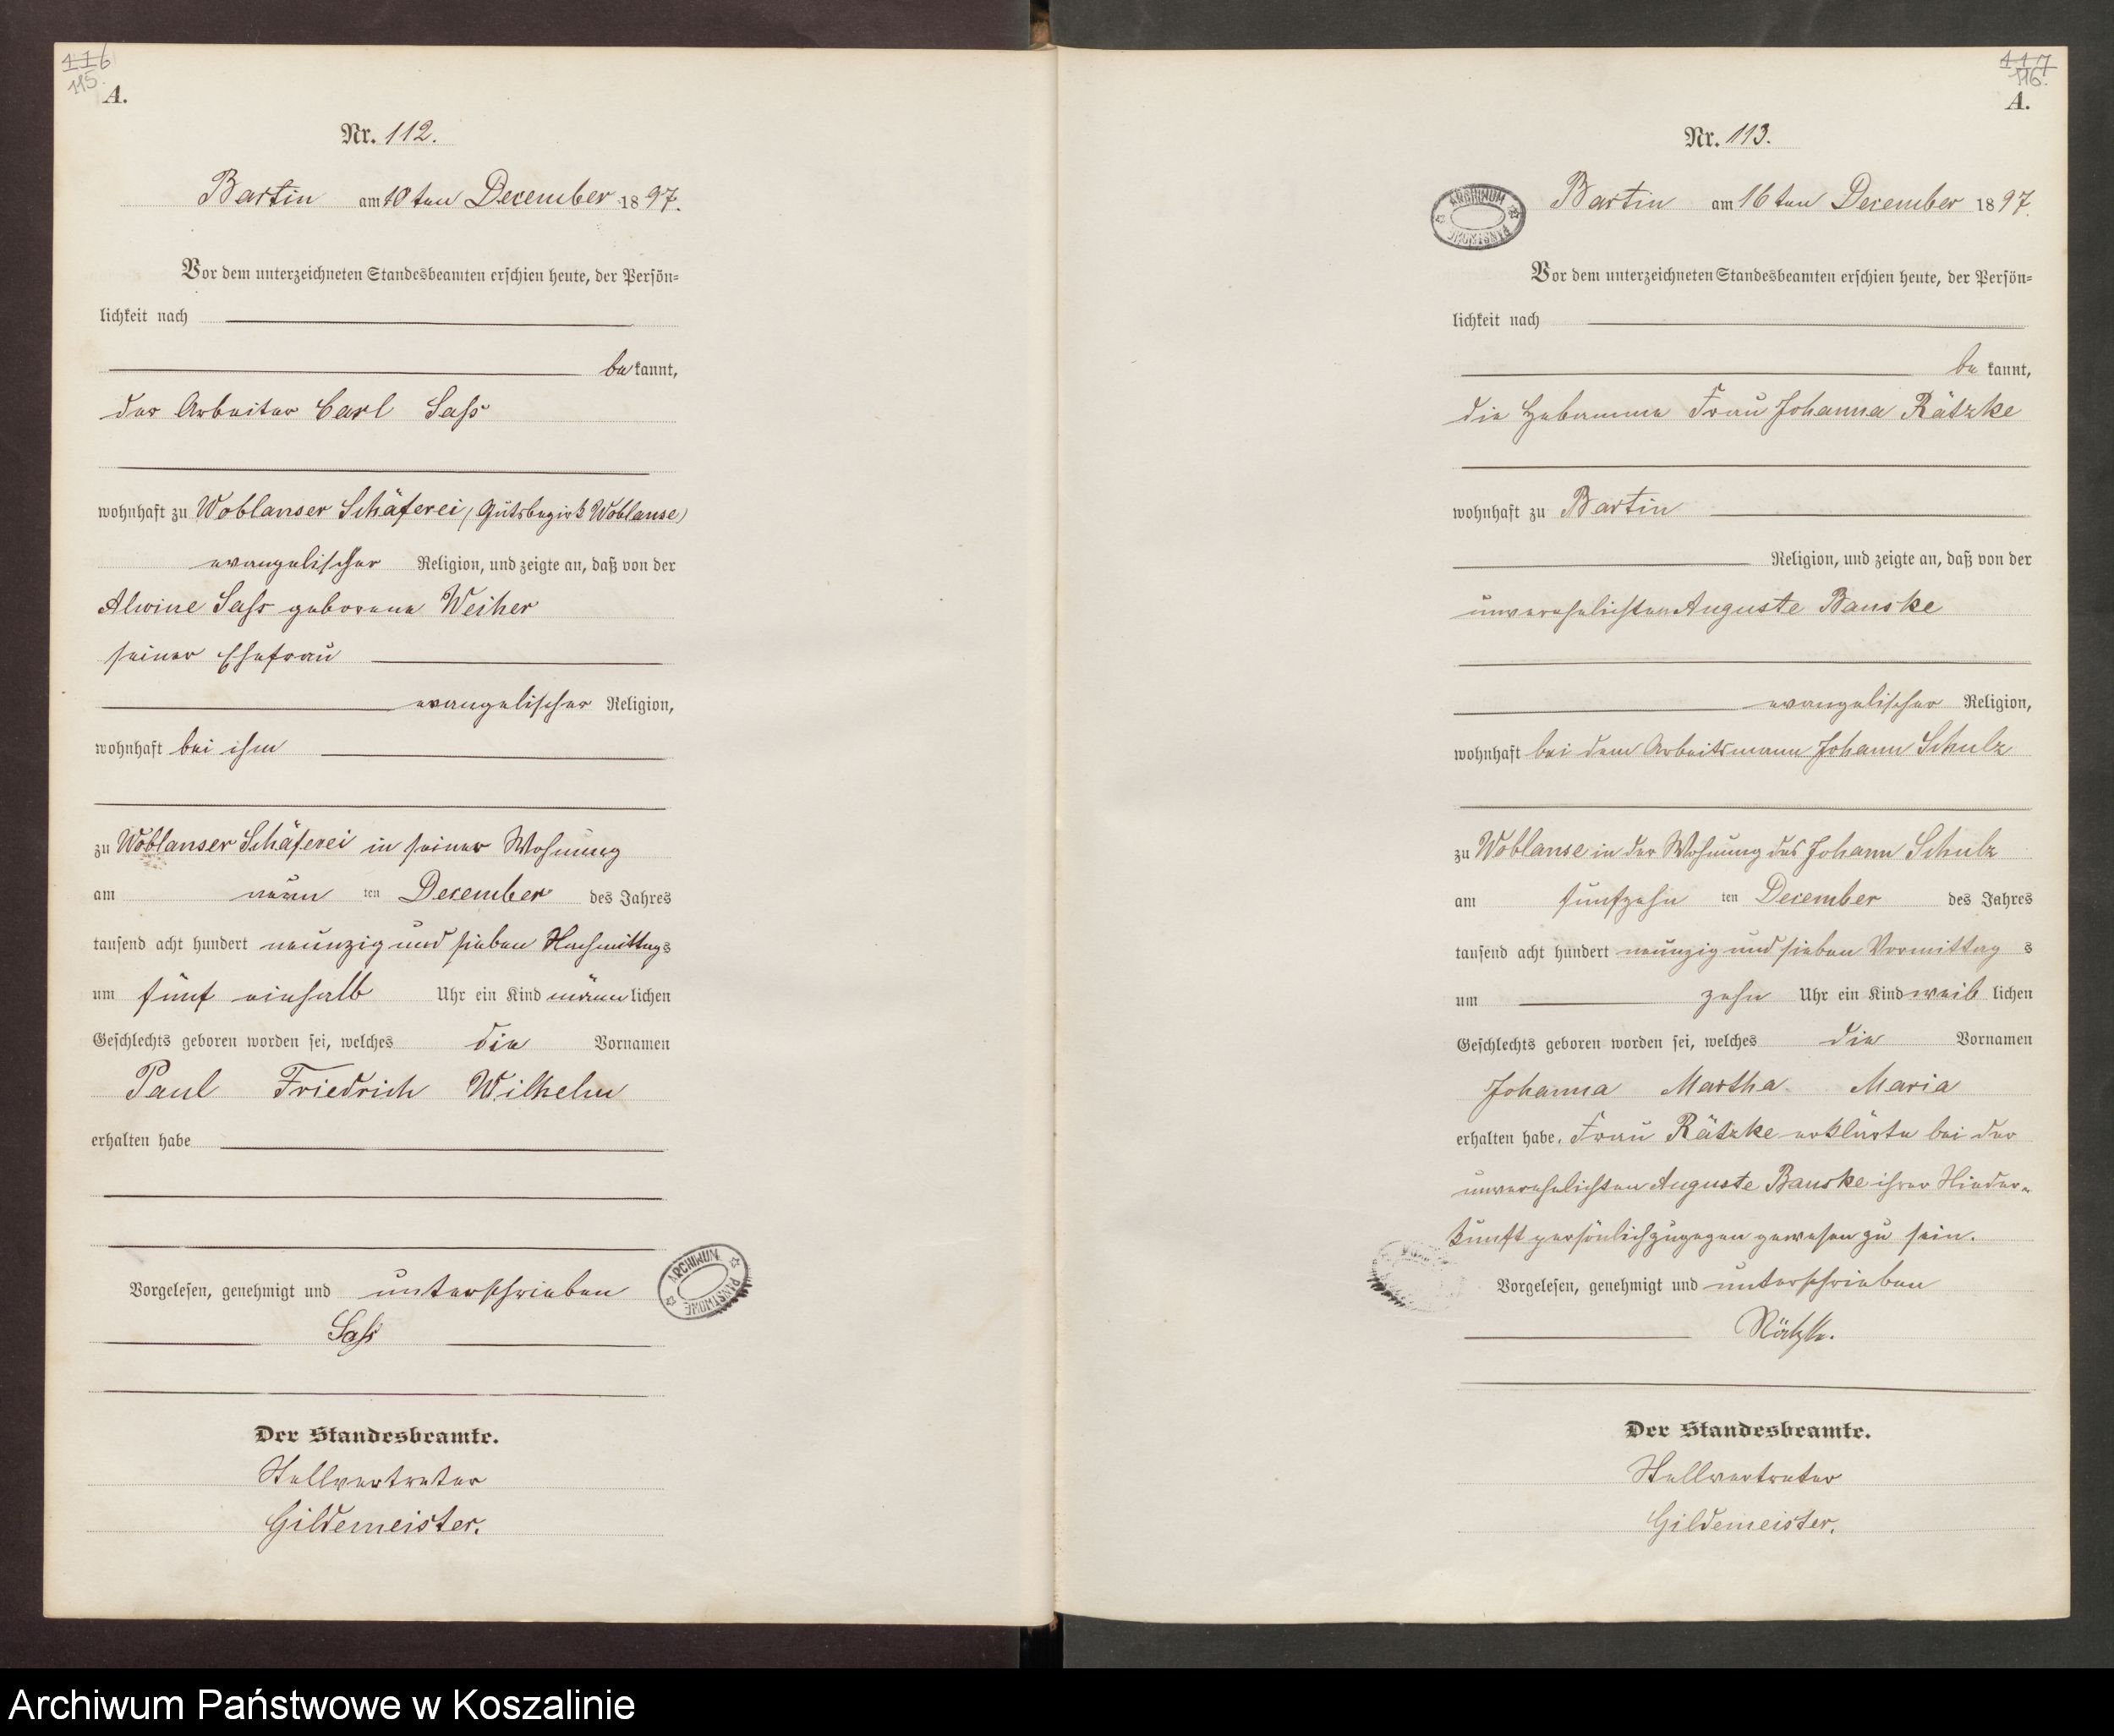 116
115.
A.
Nr. 112.
Bartin am 10ten December 1897.
Vor dem unterzeichneten Standesbeamten erschien heute, der Persön=
lichkeit nach
bekannt,
der Arbeiter Carl Saß
wohnhaft zu Woblanser Schäferei, (Gutsbezirk Woblanse)
evangelischer Religion, und zeigte an, daß von der
Alwine Saß geborene Weiher
seiner Ehefrau
evangelischer Religion,
wohnhaft bei ihm
zu Woblanser Schäferei in seiner Wohnung
am neun ten December des Jahres
tausend acht hundert neunzig und sieben Nachmittags
um fünf einhalb Uhr ein Kind männlichen
Geschlechts geboren worden sei, welches die Vornamen
Paul Friedrich Wilhelm
erhalten habe
Vorgelesen, genehmigt und unterschrieben
Saß
ARCHIWUM PAŃSTWOWE
Der Standesbeamte.
Stellvertreter
Gildemeister.
117
116.
A.
Nr. 113.
ARCHIWUM PAŃSTWOWE
Bartin am 16ten December 1897.
Vor dem unterzeichneten Standesbeamten erschien heute, der Persön=
lichkeit nach
bekannt,
die Hebamme Frau Johanna Rätzke
wohnhaft zu Bartin
Religion, und zeigte an, daß von der
unverehelichten Auguste Banske
evangelischer Religion,
wohnhaft bei dem Arbeitsmann Johann Schulz
zu Woblanse in der Wohnung des Johann Schulz
am fünfzehn ten December des Jahres
tausend acht hundert neunzig und sieben Vormittag s
um zehn Uhr ein Kind weib lichen
Geschlechts geboren worden sei, welches die Vornamen
Johanna Martha Maria
erhalten habe. Frau Rätzke erklärte bei der
unverehelichten Auguste Banske ihrer Nieder=
kunft persönlich zugegen gewesen zu sein.
Vorgelesen, genehmigt und unterschrieben
Rätzke.
Der Standesbeamte.
Stellvertreter
Gildemeister.
Archiwum Państwowe w Koszalinie